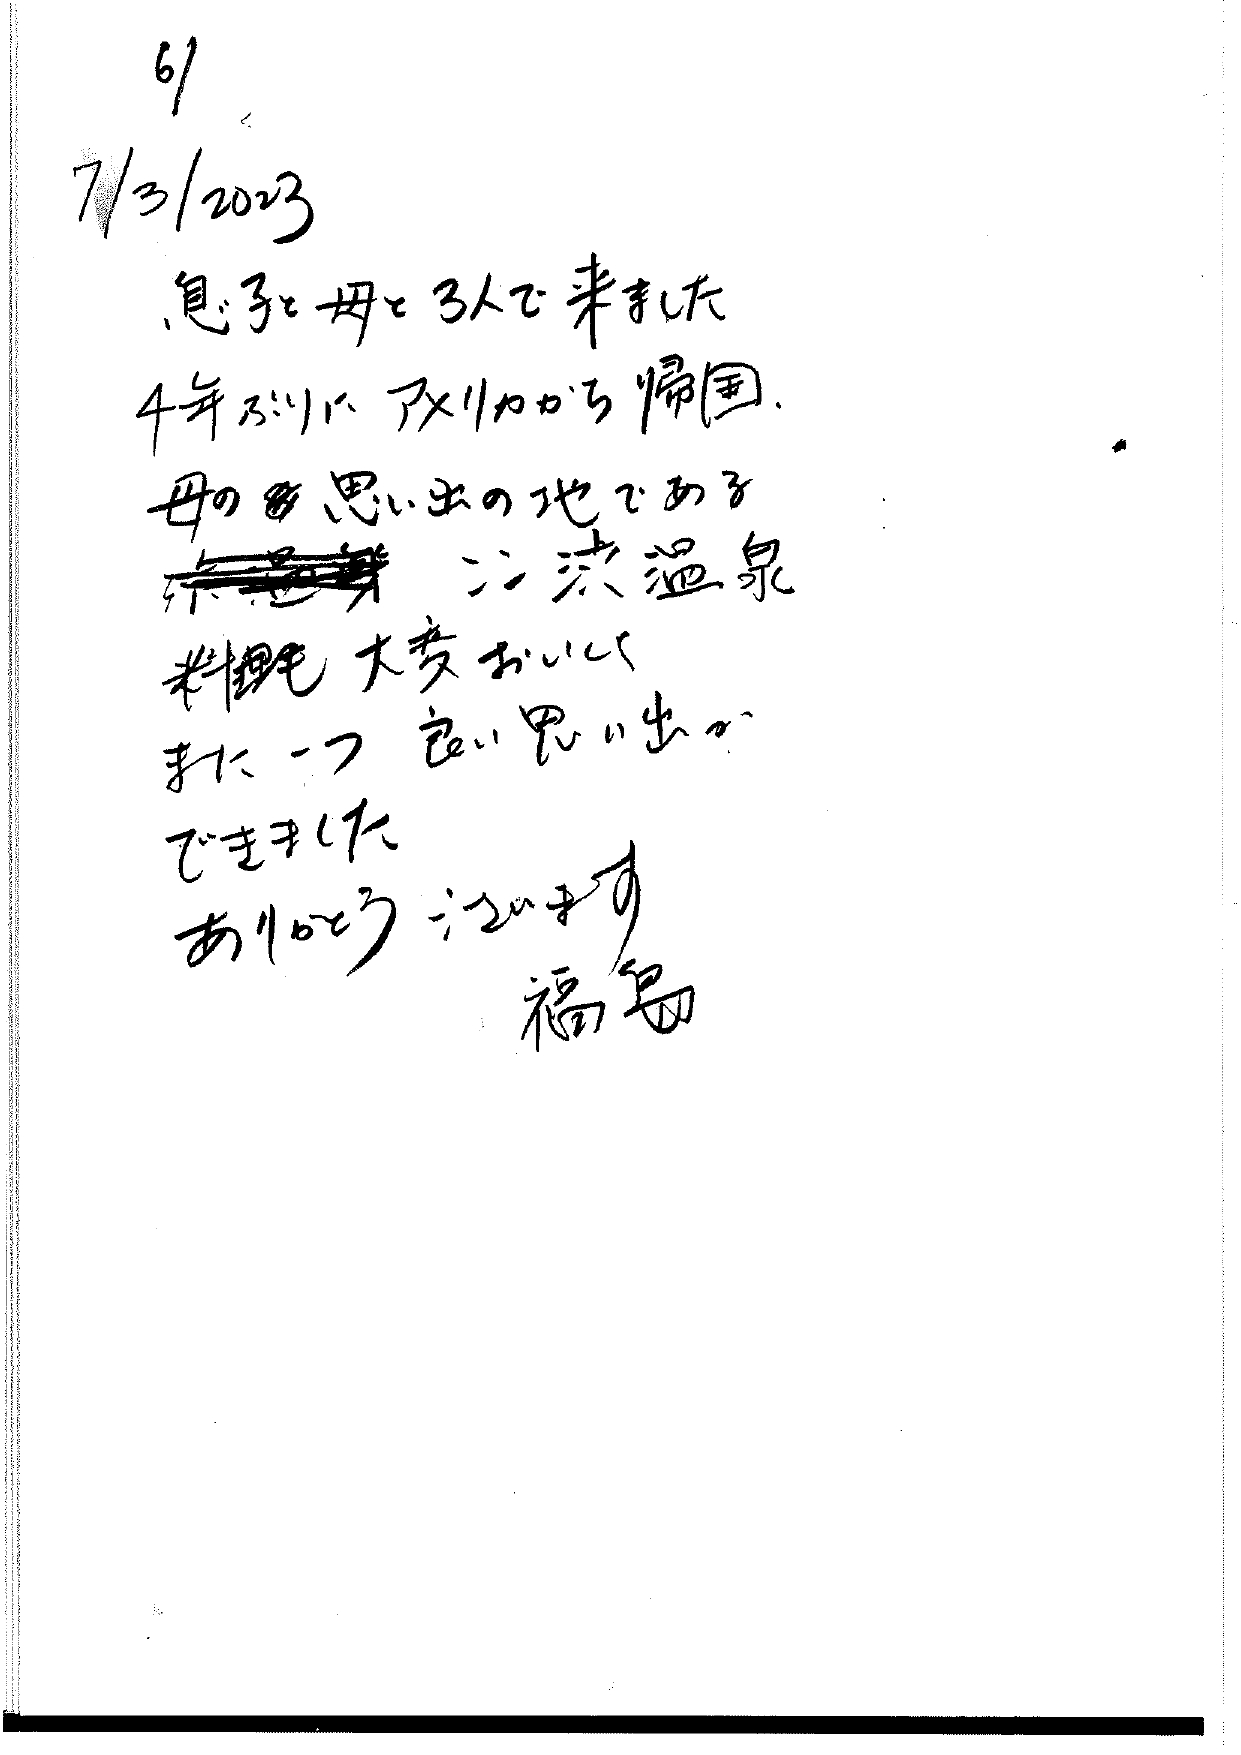 6/
7/3/2023
息子と母と3人で来ました
4年ぶりに アメリカから帰国.
母の 思い出の地である
ここ 渋温泉
料理も 大変おいしく
また一つ 良い思い出が
できました
ありがとうございます
福島